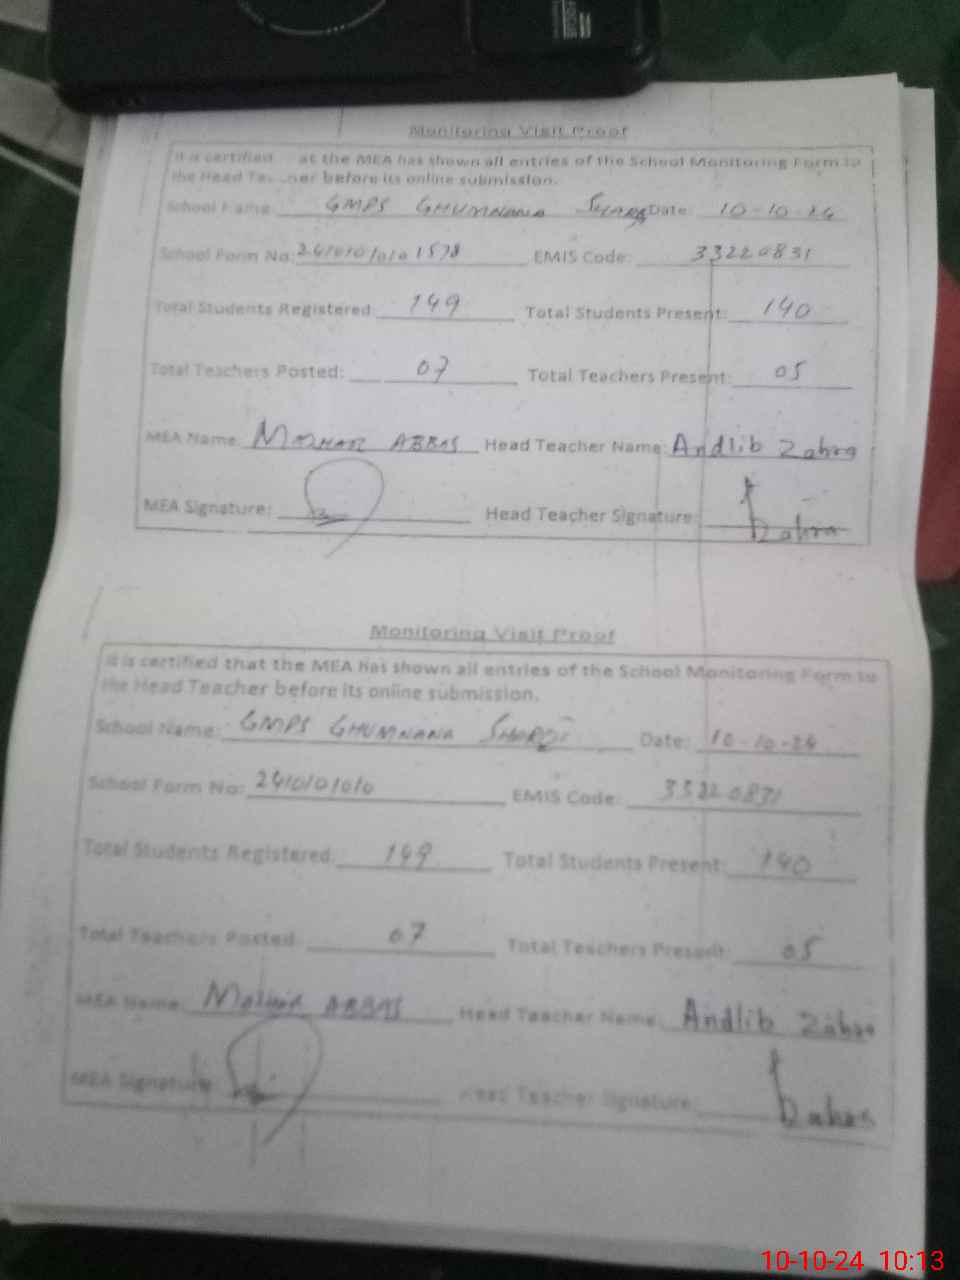 Monitoring Visit Proof
It is certified at the MEA has shown all entries of the School Monitoring Form to
the Head before its online submission.
School Name: GMPS GHUMNANA Date: 10-10-24
School Form No: EMIS Code: 33220831
Total Students Registered: 149 Total Students Present: 140
Total Teachers Posted: 07 Total Teachers Present: 05
MEA Name: ABBAS Head Teacher Name: Andlib Zahra
MEA Signature: Head Teacher Signature: Zahra
Monitoring Visit Proof
It is certified that the MEA has shown all entries of the School Monitoring Form to
the Head Teacher before its online submission.
School Name: GMPS GHUMNANA Date: 10-10-24
School Form No: 2410101010 EMIS Code: 33220831
Total Students Registered: 149 Total Students Present: 140
Total Teachers Posted: 07 Total Teachers Present: 05
MEA Name: ABBAS Head Teacher Name: Andlib Zahra
MEA Signature: Head Teacher Signature: Zahra
10-10-24 10:13